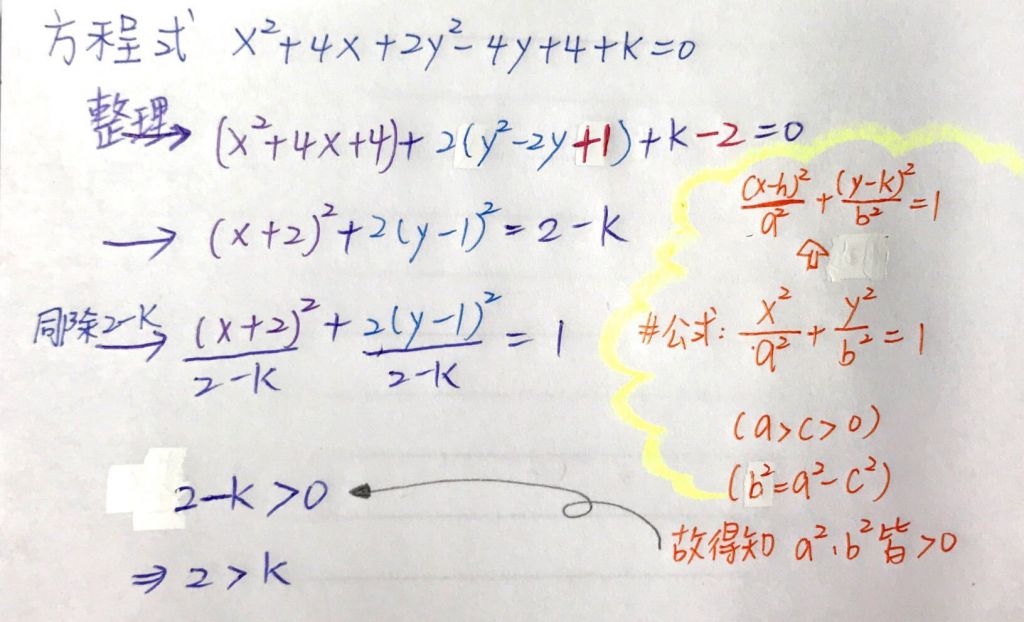 方程式 x²+4x+2y²-4y+4+k=0
整理→ (x²+4x+4)+2(y²-2y+1)+k-2=0
→ (x+2)²+2(y-1)²=2-k
同除2-k→ (x+2)²/2-k + 2(y-1)²/2-k = 1
2-k>0
⇒ 2>k
(x-h)²/a² + (y-k)²/b² = 1
⇧
#公式: x²/a² + y²/b² = 1
(a>c>0)
(b²=a²-c²)
故得知 a²、b²皆>0